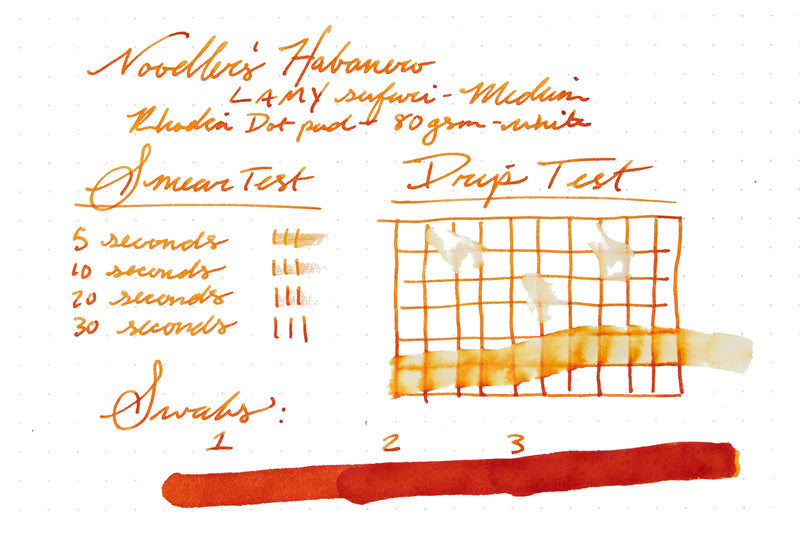 Noodler's Habanero
LAMY safari - Medium
Rhodia Dot pad - 80gsm - white
Smear Test
Drip Test
5 seconds
10 seconds
20 seconds
30 seconds
Swabs:
1 2 3